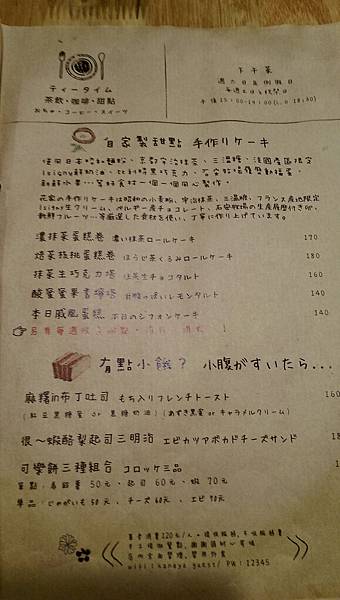 ティータイム
茶飲・咖啡・甜點
おちゃ・コーヒー・スイーツ
下午茶
週六日及例假日
午後15:00-19:00(L.O 18:30)
自家製甜點 手作りケーキ
使用日本昭和麵粉、京都宇治抹茶、三溫糖、法國產區限定
isigny鮮奶油、比利時黑巧克力、石安牧場履歷動福蛋、
新鮮水果…等好食材一個一個用心製作。
花家の手作りケーキは昭和の小麦粉、宇治抹茶、三温糖、フランス産地限定
isigny生クリーム、ベルギー産チョコレート、石安牧場の生産履歴付き卵、
新鮮フルーツ…等厳選した食材を使い、丁寧に作り上げています。
濃抹茶蛋糕卷 濃い抹茶ロールケーキ 170
焙茶核桃蛋糕卷 ほうじ茶くるみロールケーキ 180
抹茶生巧克力塔 抹茶生チョコタルト 160
酸蜜蜜果書檸塔 甘酸っぱいレモンタルト 140
本日戚風蛋糕 本日のシフォンケーキ 140
有點小餓? 小腹がすいたら...
麻糬in布丁吐司 もち入りフレンチトースト 160
(紅豆黑糖蜜 or 焦糖奶油)(あずき黒蜜 or キャラメルクリーム)
很~蝦酪梨起司三明治 エビカツアボカドチーズサンド
可樂餅三種組合 コロッケ三品
單點:馬鈴薯 50元、起司 60元、蝦 70元
単品:じゃがいも50元、チーズ60元、エビ70元
wifi:kanaya guest/ PW:12345